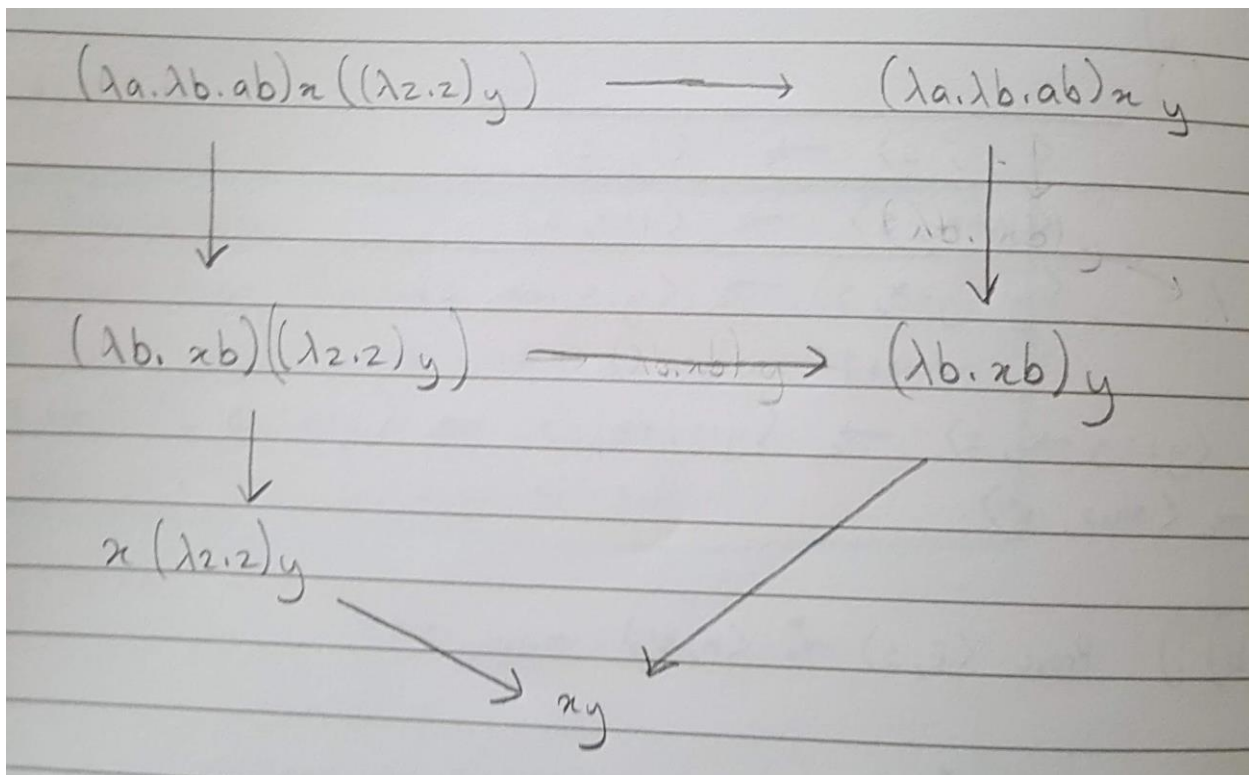 (λa.λb.ab)x((λz.z)y) ⟶ (λa.λb.ab)x y
(λb. xb)((λz.z)y) ⟶ (λb.xb)y
x(λz.z)y
xy